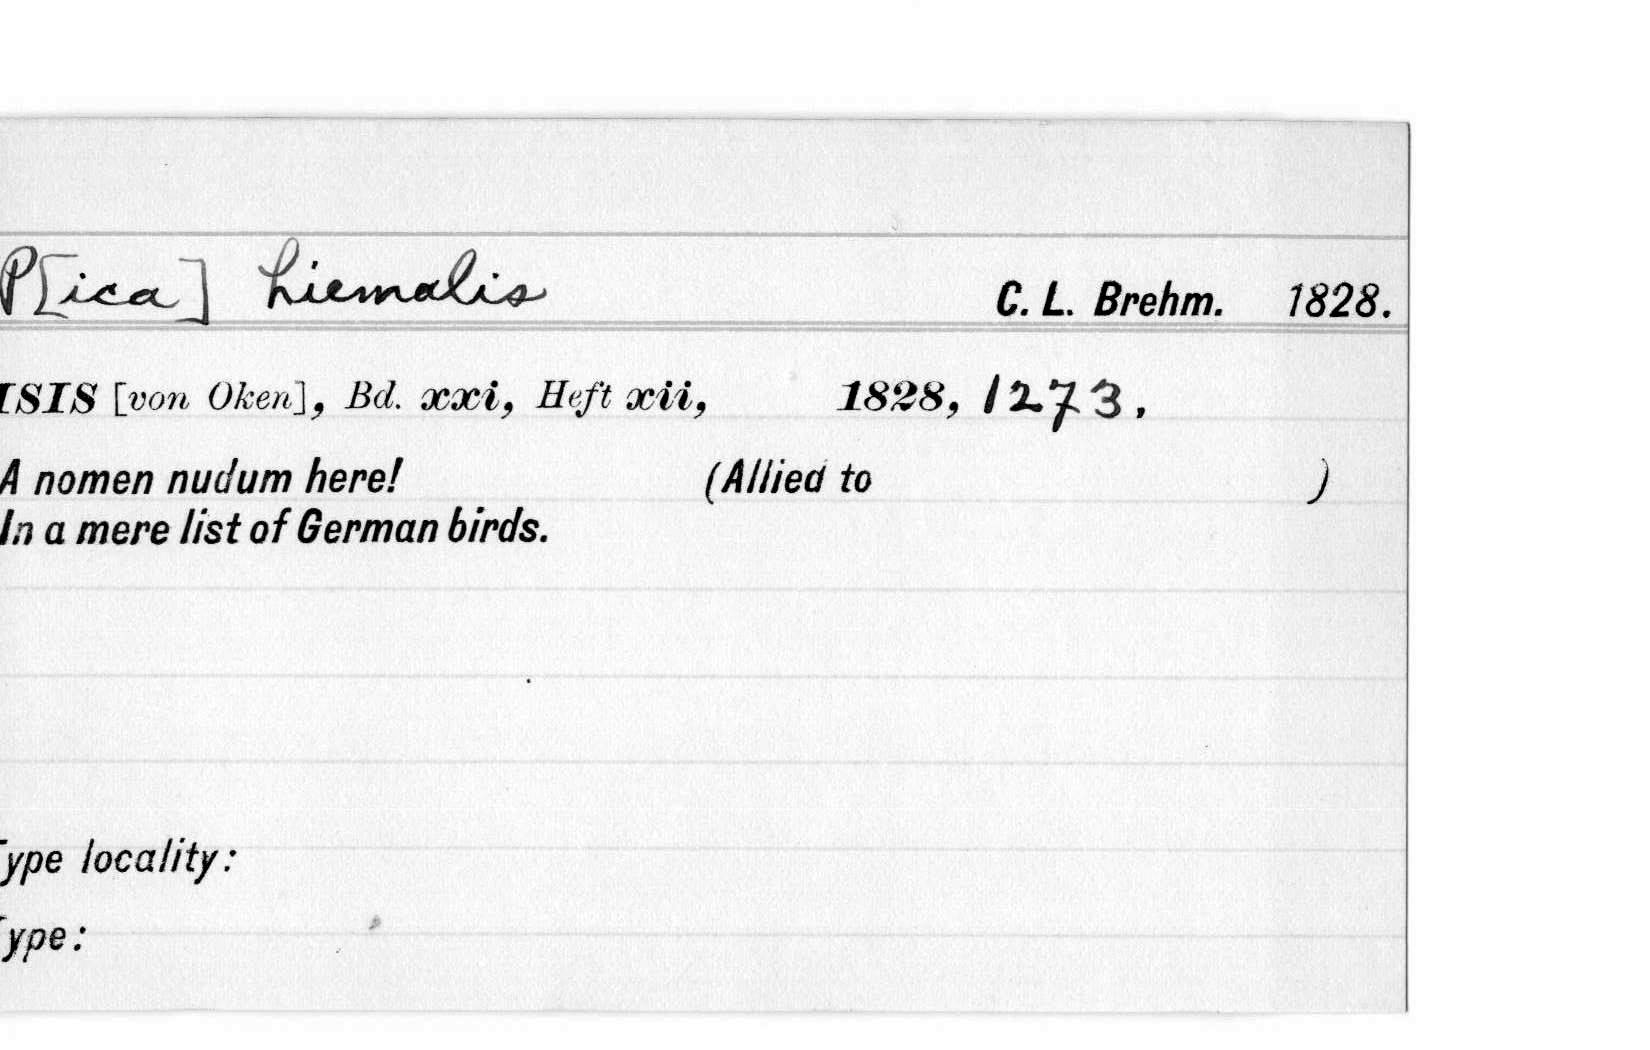 P[ica] hiemalis C. L. Brehm. 1828.
ISIS [von Oken], Bd. xxi, Heft xii, 1828, 1273.
A nomen nudum here! (Allied to )
In a mere list of German birds.
Type locality:
Type: